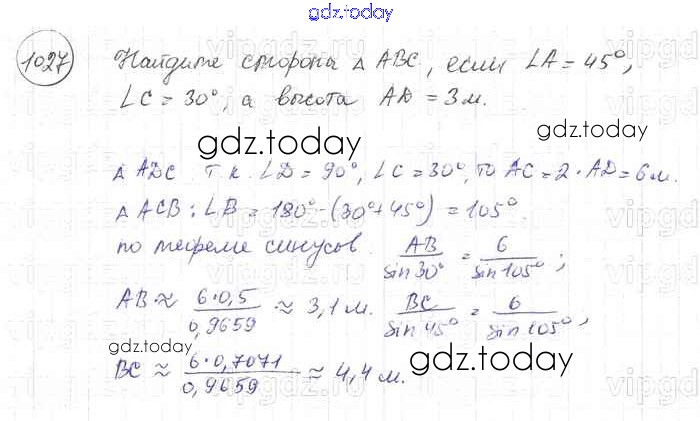 gdz.today
1027 Найдите стороны △ ABC, если ∠A = 45°,
∠C = 30°, а высота AD = 3 м.
gdz.today
△ ADC т.к. ∠D = 90°, ∠C = 30°, то AC = 2 · AD = 6 м.
△ ACB: ∠B = 180° - (30° + 45°) = 105°.
по теореме синусов. AB/sin30° = 6/sin105°;
AB ≈ 6·0,5/0,9659 ≈ 3,1 м. BC/sin45° = 6/sin105°;
gdz.today
gdz.today
BC ≈ 6·0,7071/0,9659 ≈ 4,4 м.